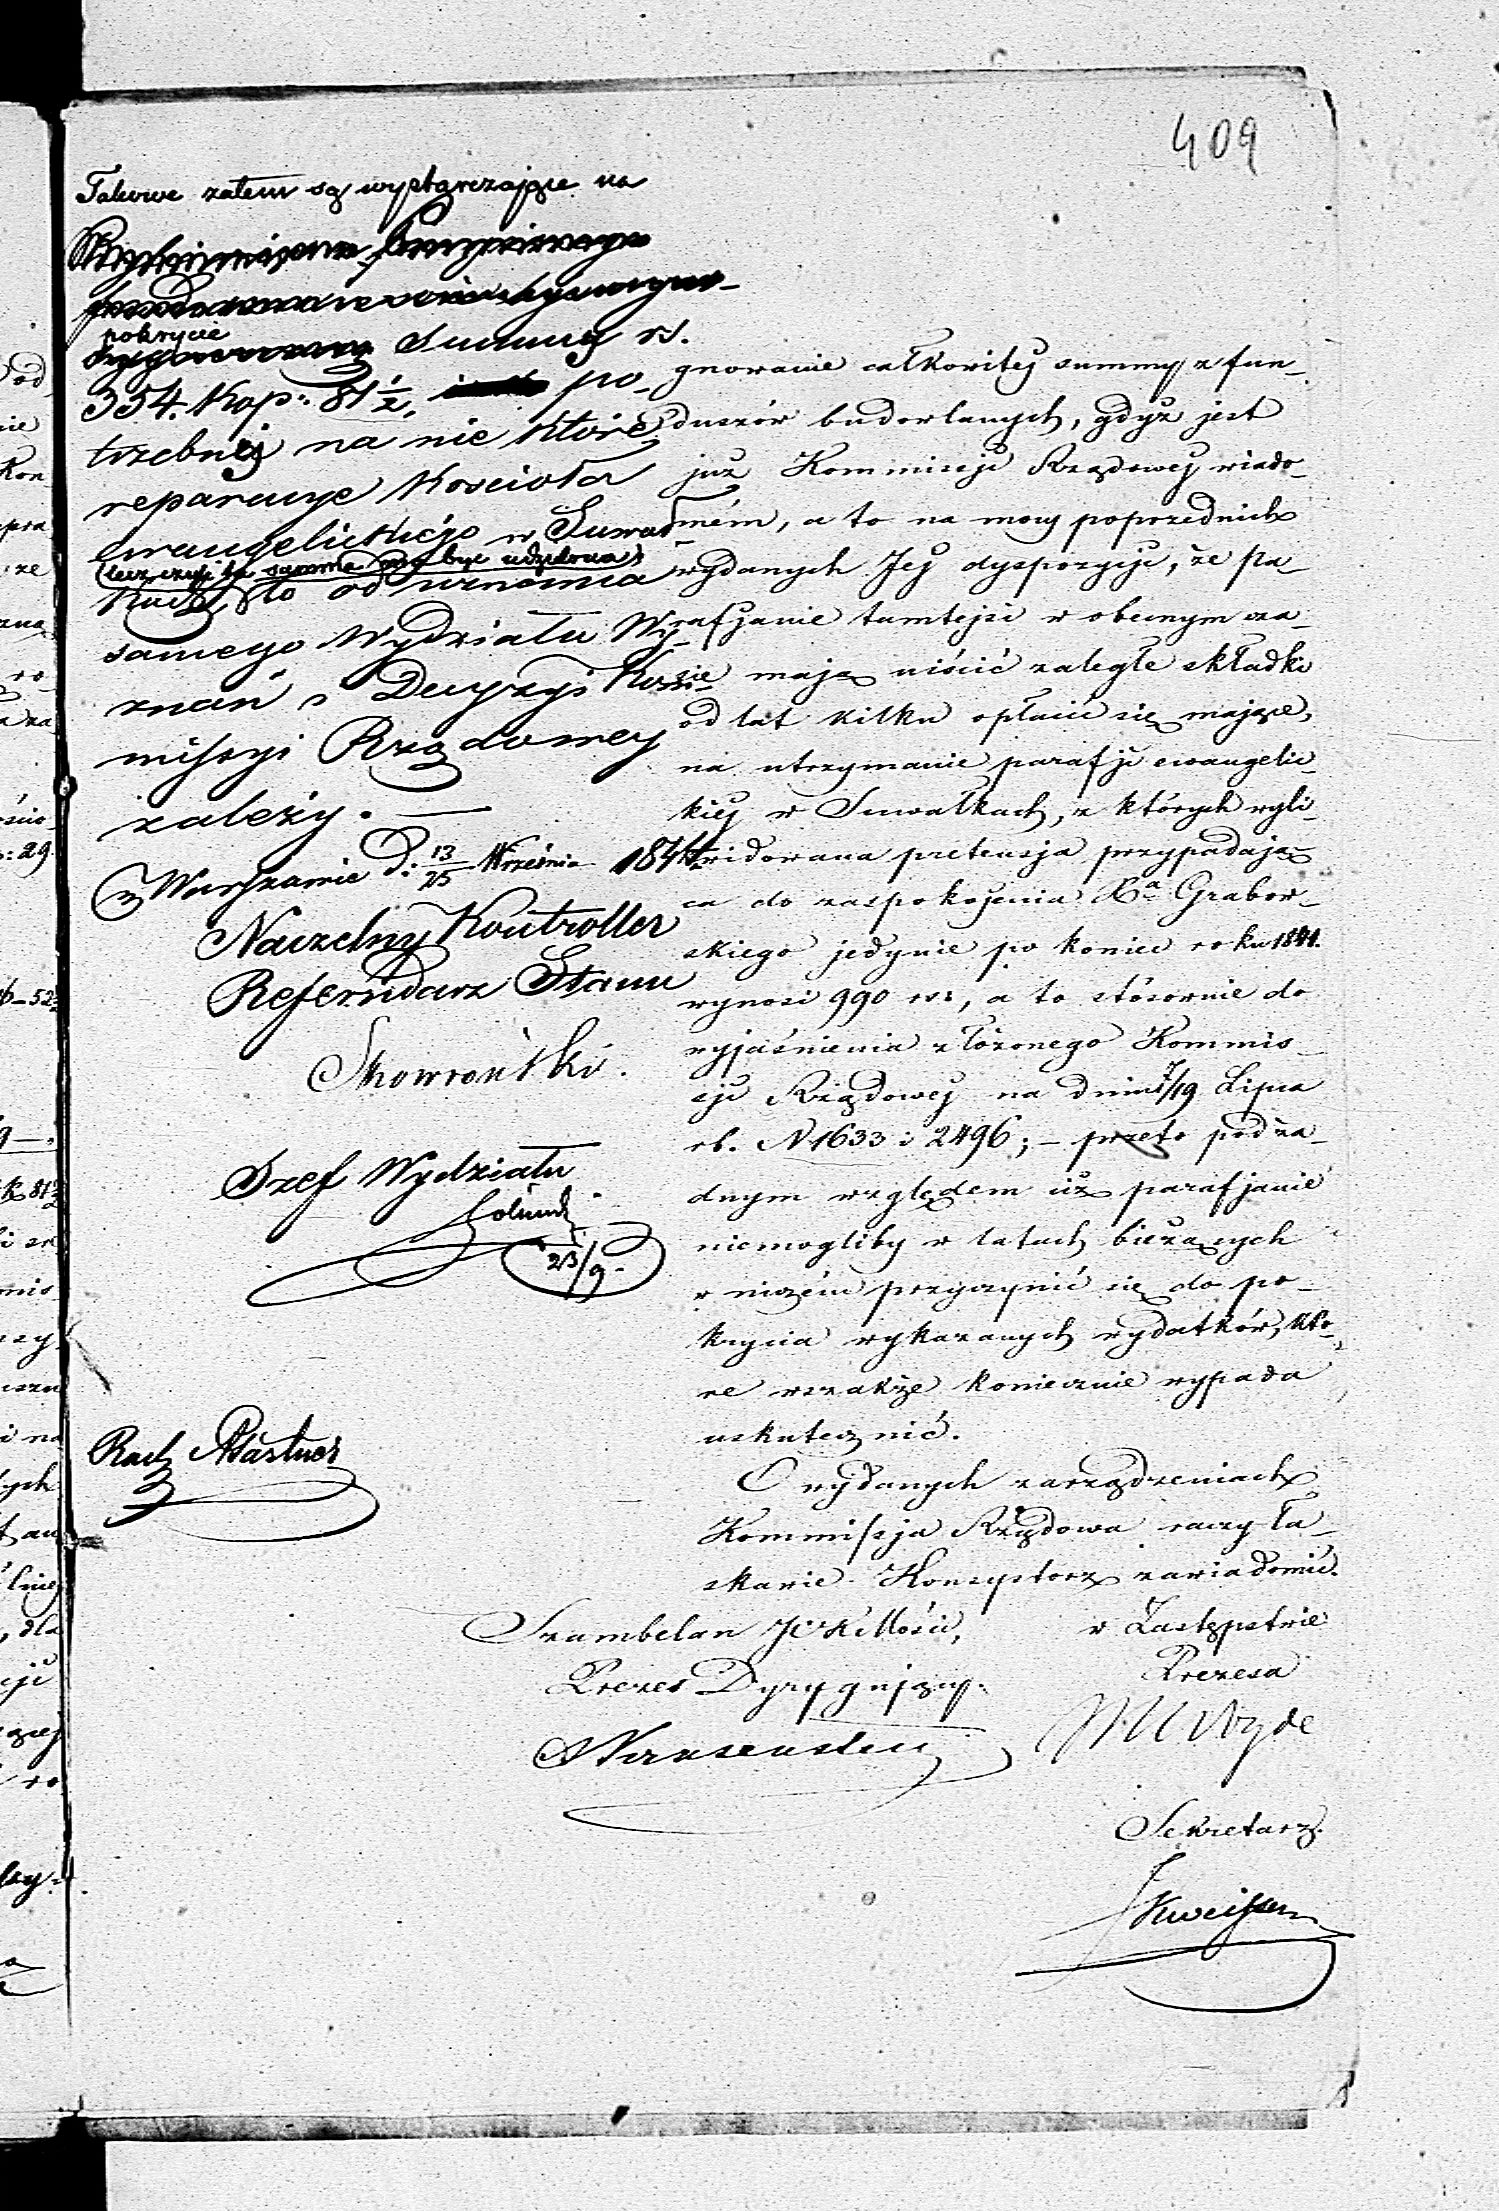 409
Takowe zatem są wystarczające na
pokrycie
Summy rs.
354. Kop: 81 1/2, po-
trzebnej na nie które
reparacye Kościoła
Ewangelickiego w Suwał-
(lecz czyli ta summa ma być udzieloną)
kach, to od uznania
samego Wydziału Wy-
znań i Decyzyi Kom-
missyi Rządowey
zależy. —
w Warszawie d. 13/25 Września 1844
Naczelny Kontroller
Referendarz Stanu
Skowroński.
Szef Wydziału
23/9
Rach
gnowanie całkowitej summy z fun-
duszów budowlanych, gdyż jest
już Kommissji Rządowej wiado-
mém, a to na mocy poprzednich
wydanych Jej dyspozycji, że pa-
rafjanie tamtejsi w obecnym cza-
sie mają uiścić zaległe składki
od lat kilku opłacić się mające,
na utrzymanie parafji ewangelic-
kiej w Suwałkach, z których wyli-
kwidowana pretensja przypadają-
ca do zaspokojenia Xa Grabow-
skiego jedynie po koniec roku 1841.
wynosi 990 rs, a to stósownie do
wyjaśnienia złożonego Kommis-
sji Rządowej na dniu 7/19 Lipca
rb. N 1633 i 2496; — przeto pod ża-
dnym względem ciż parafjanie
niemogliby w latach bieżących
w niczém przyczynić się do po-
krycia wykazanych wydatków, któ-
re wszakże koniecznie wypada
uskutecznić.
O wydanych zarządzeniach
Kommissja Rządowa raczy ła-
skawie Konsystorz zawiadomić.
Szambelan JCKMości,
Prezes Dyrygujący.
w Zastępstwie
Prezesa
Sekretarz.